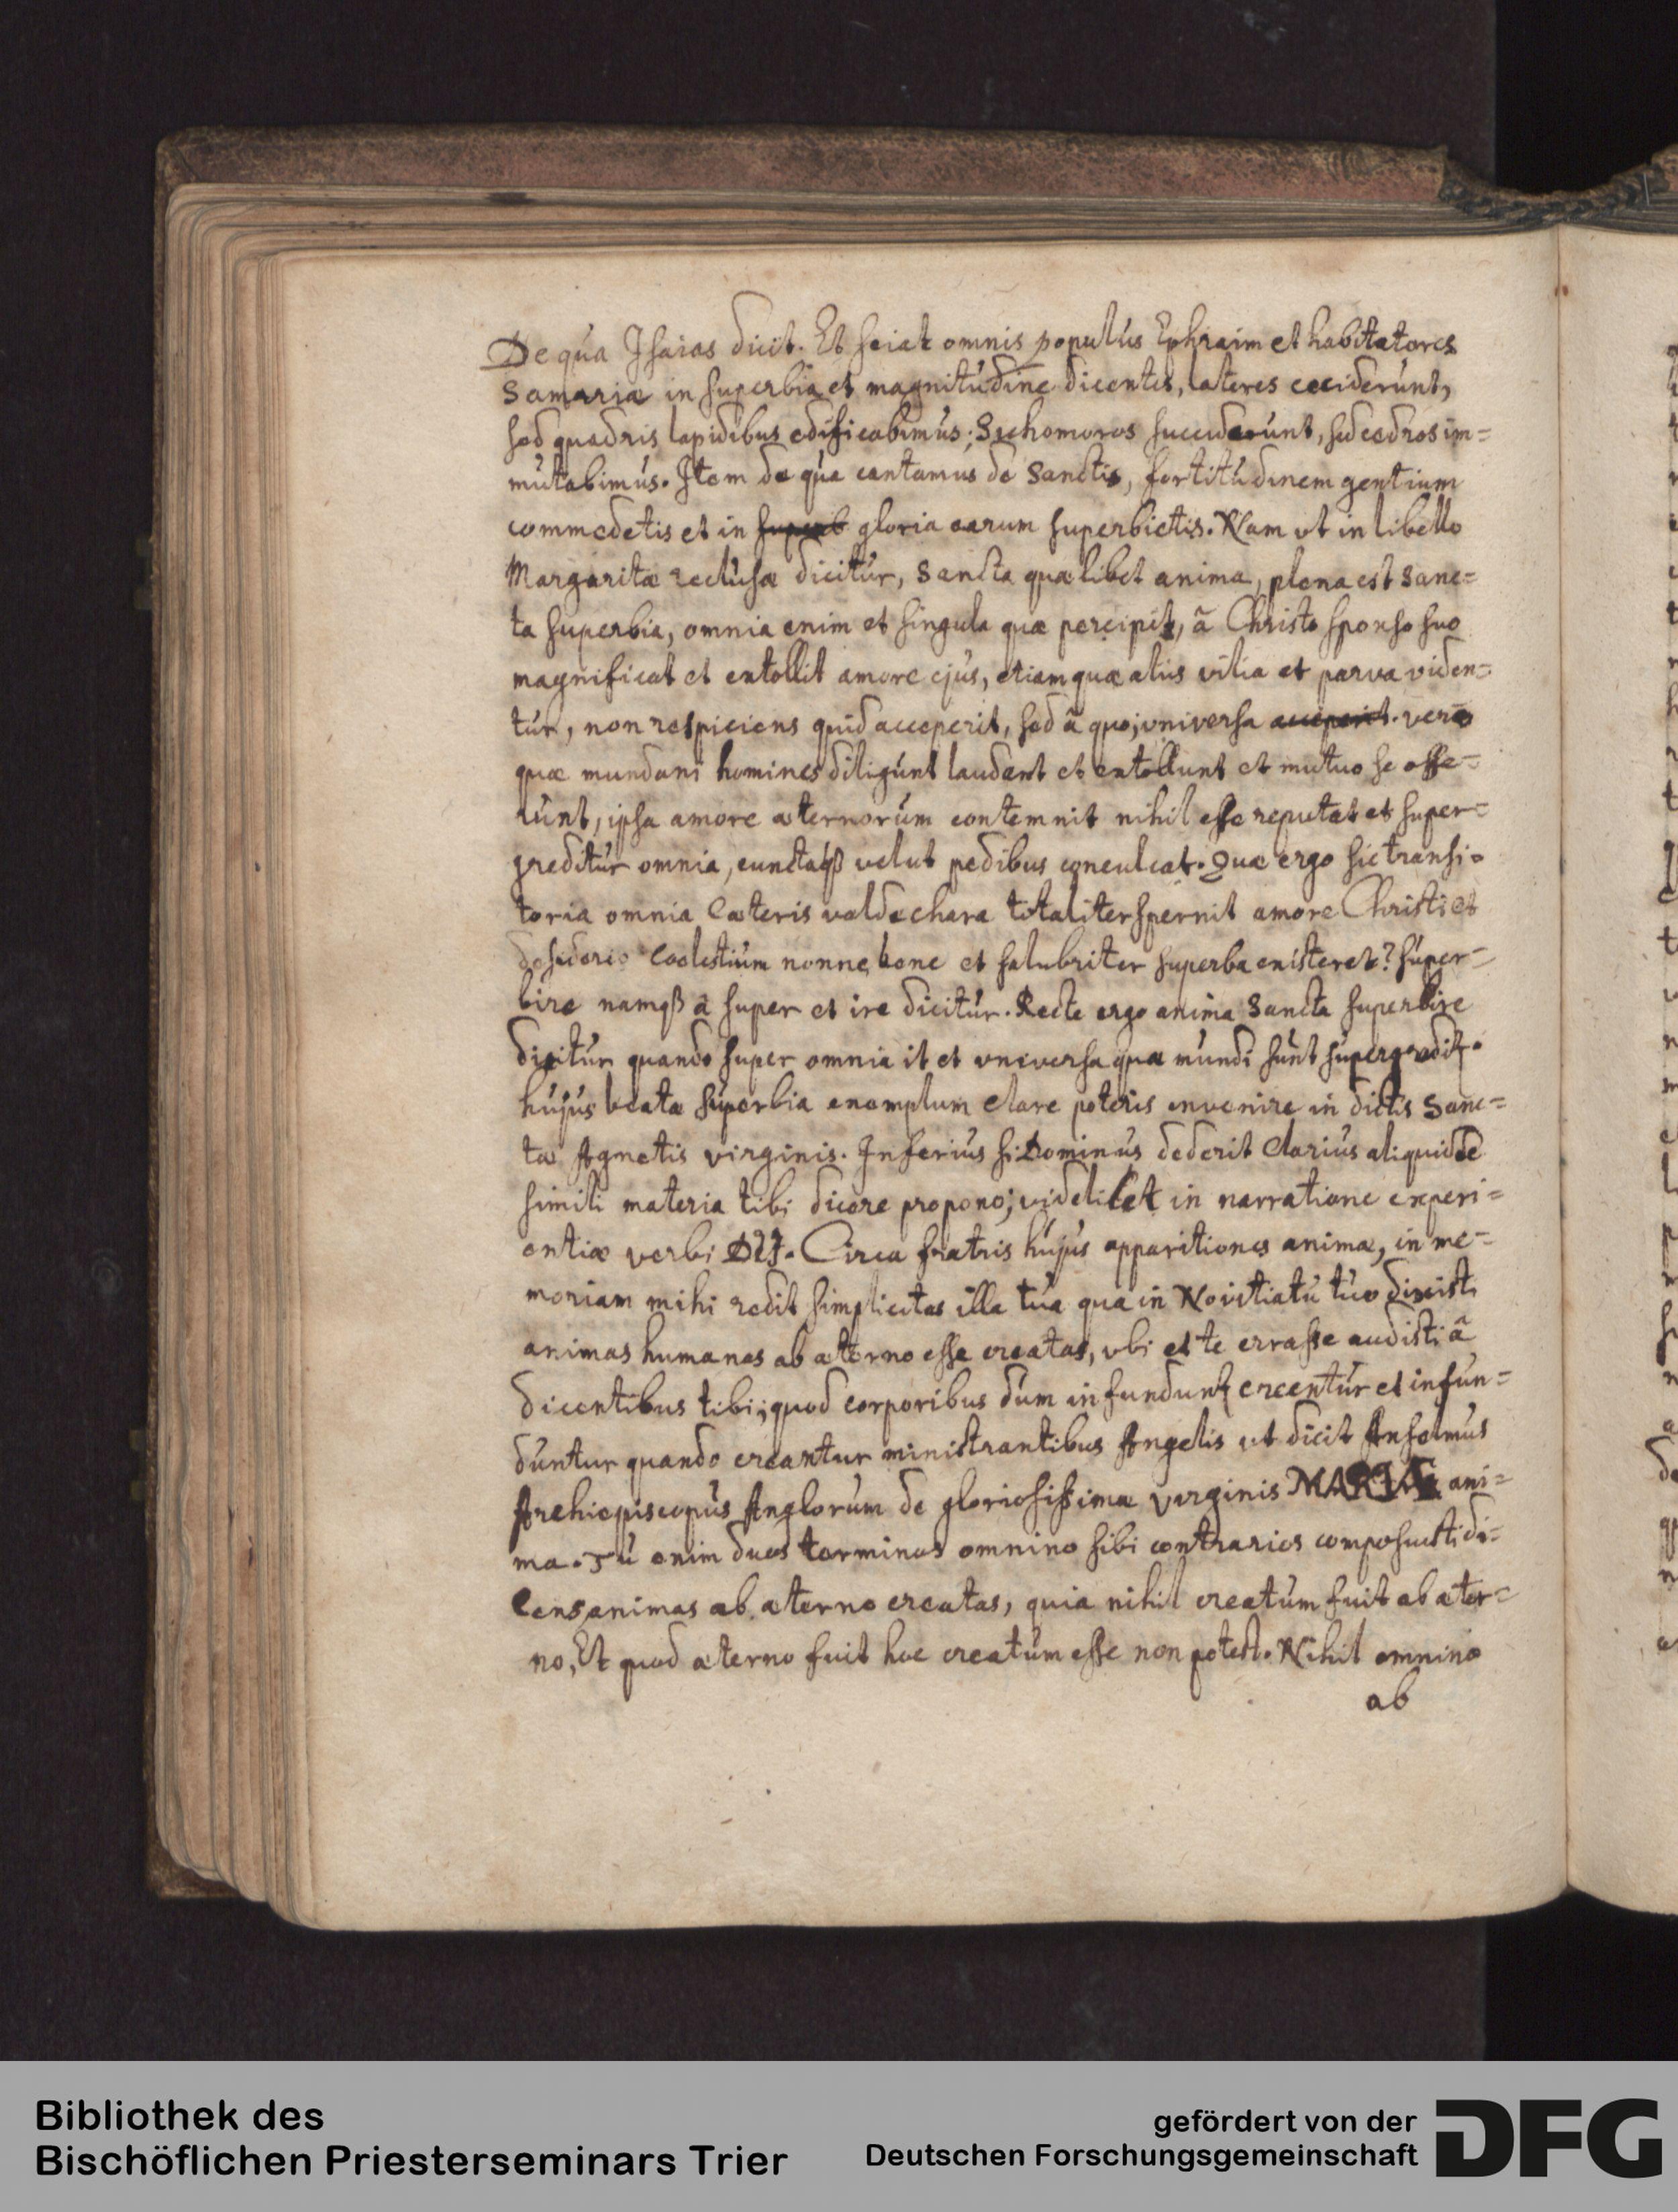 De qúa Isaias dicit. Et sciat omnis populús Ephraim et habitatores
Samariæ in superbia et magnitúdine dicentes, lateres ceciderúnt,
sed quadris lapidibus edificabimús; Sichomoros succiderúnt, sed cedros im=
mútabimús. Item de qúa cantamus de Sanctis, fortitúdinem gentium
commedetis et in superb gloria earum superbietis. Nam vt in libello
Margaritæ reclúsæ dicitúr, Sancta quælibet anima, plena est Sanc=
ta superbia, omnia enim et singula quæ percipit, ã Christo sponso suo
magnificat et extollit amore ejús, etiam quæ aliis vilia et parva viden=
túr, non respiciens quid acceperit, sed ã quo; vniversa acceperit. vero
quæ mundani homines diligúnt laudant et extollunt et mutuo se effe=
rúnt, ipsa amore æternorúm contemnit nihil esse reputat et super=
greditúr omnia, cunctaqß velut pedibus conculcat. Quæ ergo sic transi=
toria omnia Cæteris valde chara totaliter spernit amore Christi et
desiderio Coelestiúm nonne bone et salubriter superba existeret? súper=
bire namqß ã super et ire dicitúr. Recte ergo anima Sancta superbire
dicitúr quando super omnia it et vniversa quæ múndi súnt súpergredit.
hújús beatæ súperbia exemplum Clare poteris invenire in dictis Sanc=
tæ Agnetis virginis. Inferius si Dominús dederit Clarius aliquid de
simili materia tibi dicere propono; videlicet in narratione experi=
entiæ verbi DEI. Circa fratris hújús apparitiones animæ, in me=
moriam mihi redit simplicitas illa túa qua in Novitiatú túo dixisti
animas humanas ab æterno esse creatas, vbi et te errasse audisti ã
dicentibus tibi; quod corporibus dúm infundunt creentúr et infún=
dúntur quando creantur ministrantibus Angelis ut dicit Anselmús
Archiepiscopús Anglorúm de gloriosissimæ virginis MARIAE ani=
ma. Tú enim duos terminos omnino sibi contrarios composuisti di=
Cens animas ab æterno creatas, quia nihil creatúm fuit ab æter=
no, Et quod æterno fuit hoc creatúm esse non potest. Nihil omnino
ab
Bibliothek des
Bischöflichen Priesterseminars Trier
gefördert von der
Deutschen Forschungsgemeinschaft
DFG